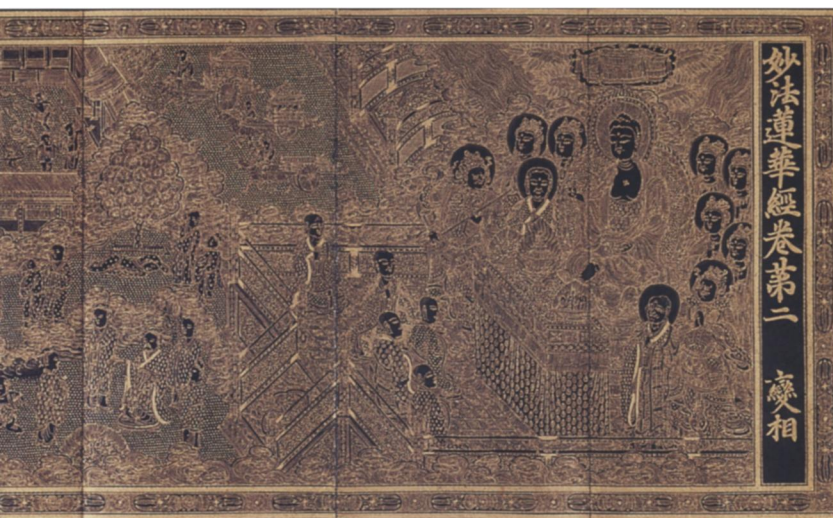 妙法蓮華經卷苐二 變相